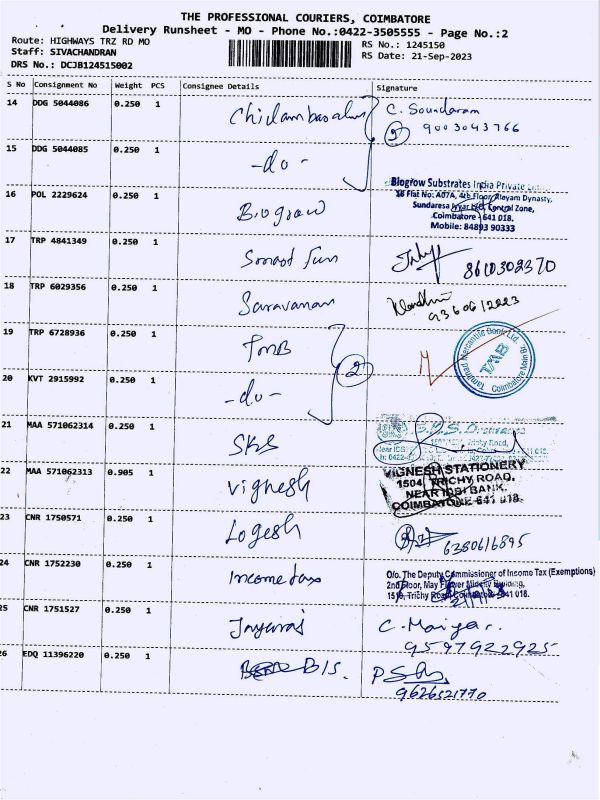 THE PROFESSIONAL COURIERS, COIMBATORE
Delivery Runsheet - MO - Phone No.:0422-3505555 - Page No.:2
Route: HIGHWAYS TRZ RD MO
RS No.: 1245150
Staff: SIVACHANDRAN
RS Date: 21-Sep-2023
DRS No.: DCJB124515002
S No Consignment No Weight PCS Consignee Details Signature
14 DDG 5044086 0.250 1 C. Soundaram
2 9003043766
15 DDG 5044085 0.250 1 -do-
16 POL 2229624 0.250 1 Biogrow
Biogrow Substrates India Private
Flat No: A07A, 4th Floor, Aleyam Dynasty,
Central Zone,
Coimbatore - 641 018.
Mobile: 84893 90333
17 TRP 4841349 0.250 1 Smart fun 8610302370
18 TRP 6029356 0.250 1 Saravanan
19 TRP 6728936 0.250 1 TMB
Tamilnad Mercantile Bank Ltd.
TMB
Coimbatore Main Br.
2
20 KVT 2915992 0.250 1 -do-
21 MAA 571062314 0.250 1 SKS
Trichy Road,
22 MAA 571062313 0.905 1 Vignesh
VIGNESH STATIONERY
1504, TRICHY ROAD,
NEAR IDBI BANK,
COIMBATORE-641 018.
23 CNR 1750571 0.250 1 Logesh 6380616895
24 CNR 1752230 0.250 1 Income tax
O/o. The Deputy Commissioner of Income Tax (Exemptions)
2nd Floor, May Flower Building,
Trichy Road, Coimbatore - 641 018.
25 CNR 1751527 0.250 1 Jayaraj
9597922925
26 EDQ 11396220 0.250 1 BIS.
9626521770